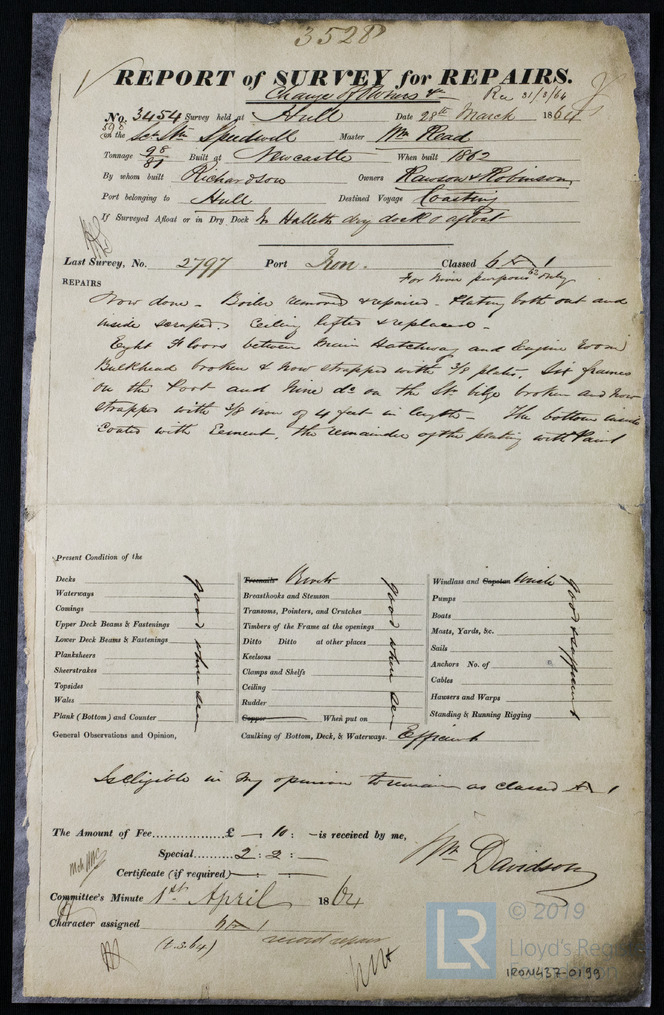 3528
REPORT of SURVEY for REPAIRS.
Change of Owners &c Rec 31/3/64
No. 3454 Survey held at Hull Date 28th March 1864
598 on the Sc Str Speedwell Master Wm Read
Tonnage 98/81 Built at Newcastle When built 1862
By whom built Richardson Owners Rawson & Robinson
Port belonging to Hull Destined Voyage Coasting
If Surveyed Afloat or in Dry Dock In Halletts dry dock & afloat
Last Survey, No. 2797 Port Iron. Classed 6 A 1
For River purposes only
62
REPAIRS
Now done - Boiler removed & repaired. Plating both out and
inside scraped. Ceiling lifted & replaced -
Eight Floors between Main Hatchway and Engine Room
Bulkhead broken & now strapped with 3/8 plates. Six frames
on the Port and Nine do on the St. bilge broken and now
strapped with 3/8 iron of 4 feet in length - The bottom inside
coated with Cement, the remainder of the plating with Paint
Present Condition of the
Decks
Waterways
Comings
Upper Deck Beams & Fastenings
Lower Deck Beams & Fastenings
Planksheers
Sheerstrakes
Topsides
Wales
Plank (Bottom) and Counter
good where seen
Treenails Rivets
Breasthooks and Stemson
Transoms, Pointers, and Crutches
Timbers of the Frame at the openings
Ditto Ditto at other places
Keelsons
Clamps and Shelfs
Ceiling
Rudder
Copper When put on
good where seen
Windlass and Capstan Winch
Pumps
Boats
Masts, Yards, &c.
Sails
Anchors No. of
Cables
Hawsers and Warps
Standing & Running Rigging
good & efficient
General Observations and Opinion, Caulking of Bottom, Deck, & Waterways. Efficient
Is eligible in my opinion to remain as classed A 1
The Amount of Fee £ — : 10 : — is received by me,
Special 2 : 2 : —
Certificate (if required) — : —
Wm Davidson
Committee's Minute 1st April 1864
Character assigned 6 A 1
(1.3.64) record repairs
LR
© 2019
Lloyd's Reg
IRON437-0199